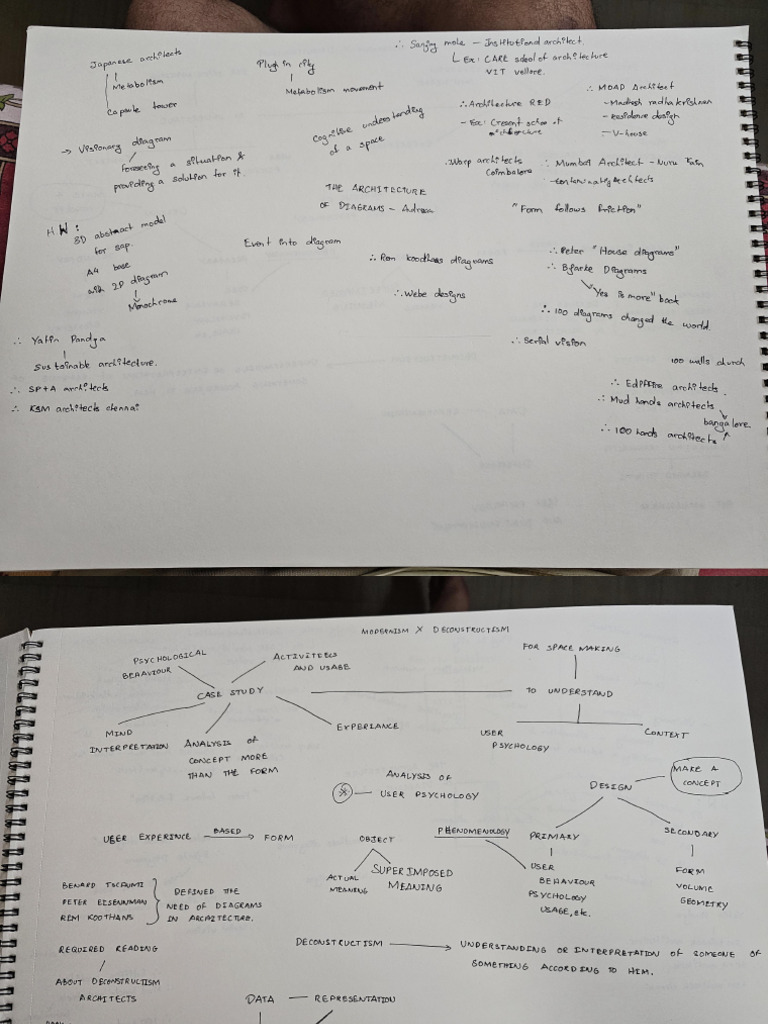 ∴ Sanjay mohe – Institutional architect.
Ex: CARE school of architecture
VIT vellore.
Japanese architects
Metabolism
Capsule tower
Plug in city
Metabolism movement
∴ MOAD Architect
- Madhesh radhakrishnan
- Residence design
- V-house
∴ Architecture RED
- Ex: Cresent school of
architecture
→ Visionary diagram
Foreseeing a situation &
providing a solution for it.
Cognitive understanding
of a space
∴ Warp architects
Coimbatore
∴ Mumbai Architect – Nuru Karim
THE ARCHITECTURE
OF DIAGRAMS – Andrea
"Form follows friction"
HW:
3D abstract model
for sap.
A4 base
with 2D diagram
Monochrome
Event into diagram
∴ Rem koodhaas diagrams
∴ Webe designs
∴ Peter "House diagrams"
∴ Bjarke Diagrams
"Yes is more" book
∴ 100 diagrams changed the world.
∴ Serial vision
100 walls church
∴ Yatin Pandya
Sustainable architecture.
∴ SP+A architects
∴ KSM architects chennai
∴ Edifffire architects.
∴ Mud hands architects
bangalore
∴ 100 hands architects
MODERNISM X DECONSTRUCTISM
PSYCHOLOGICAL
BEHAVIOUR
ACTIVITEES
AND USAGE
FOR SPACE MAKING
CASE STUDY
TO UNDERSTAND
MIND
INTERPRETATION
ANALYSIS of
CONCEPT MORE
THAN THE FORM
EXPERIANCE
USER
PSYCHOLOGY
CONTEXT
ANALYSIS OF
USER PSYCHOLOGY
DESIGN
MAKE A
CONCEPT
USER EXPERINCE BASED FORM
OBJECT
ACTUAL
MEANING
SUPERIMPOSED
MEANING
PHENOMENOLOGY
PRIMARY
SECONDARY
USER
BEHAVIOUR
PSYCHOLOGY
USAGE, etc.
FORM
VOLUME
GEOMETRY
BENARD TSCHUMI
PETER EISENNMAN
REM KOOTHANS
DEFINED THE
NEED OF DIAGRAMS
IN ARCHITECTURE.
REQUIRED READING
ABOUT DECONSTRUCTISM
ARCHITECTS
DECONSTRUCTISM → UNDERSTANDING OR INTERPRETATION of SOMEONE OF
SOMETHING ACCORDING TO HIM.
DATA – REPRESENTATION